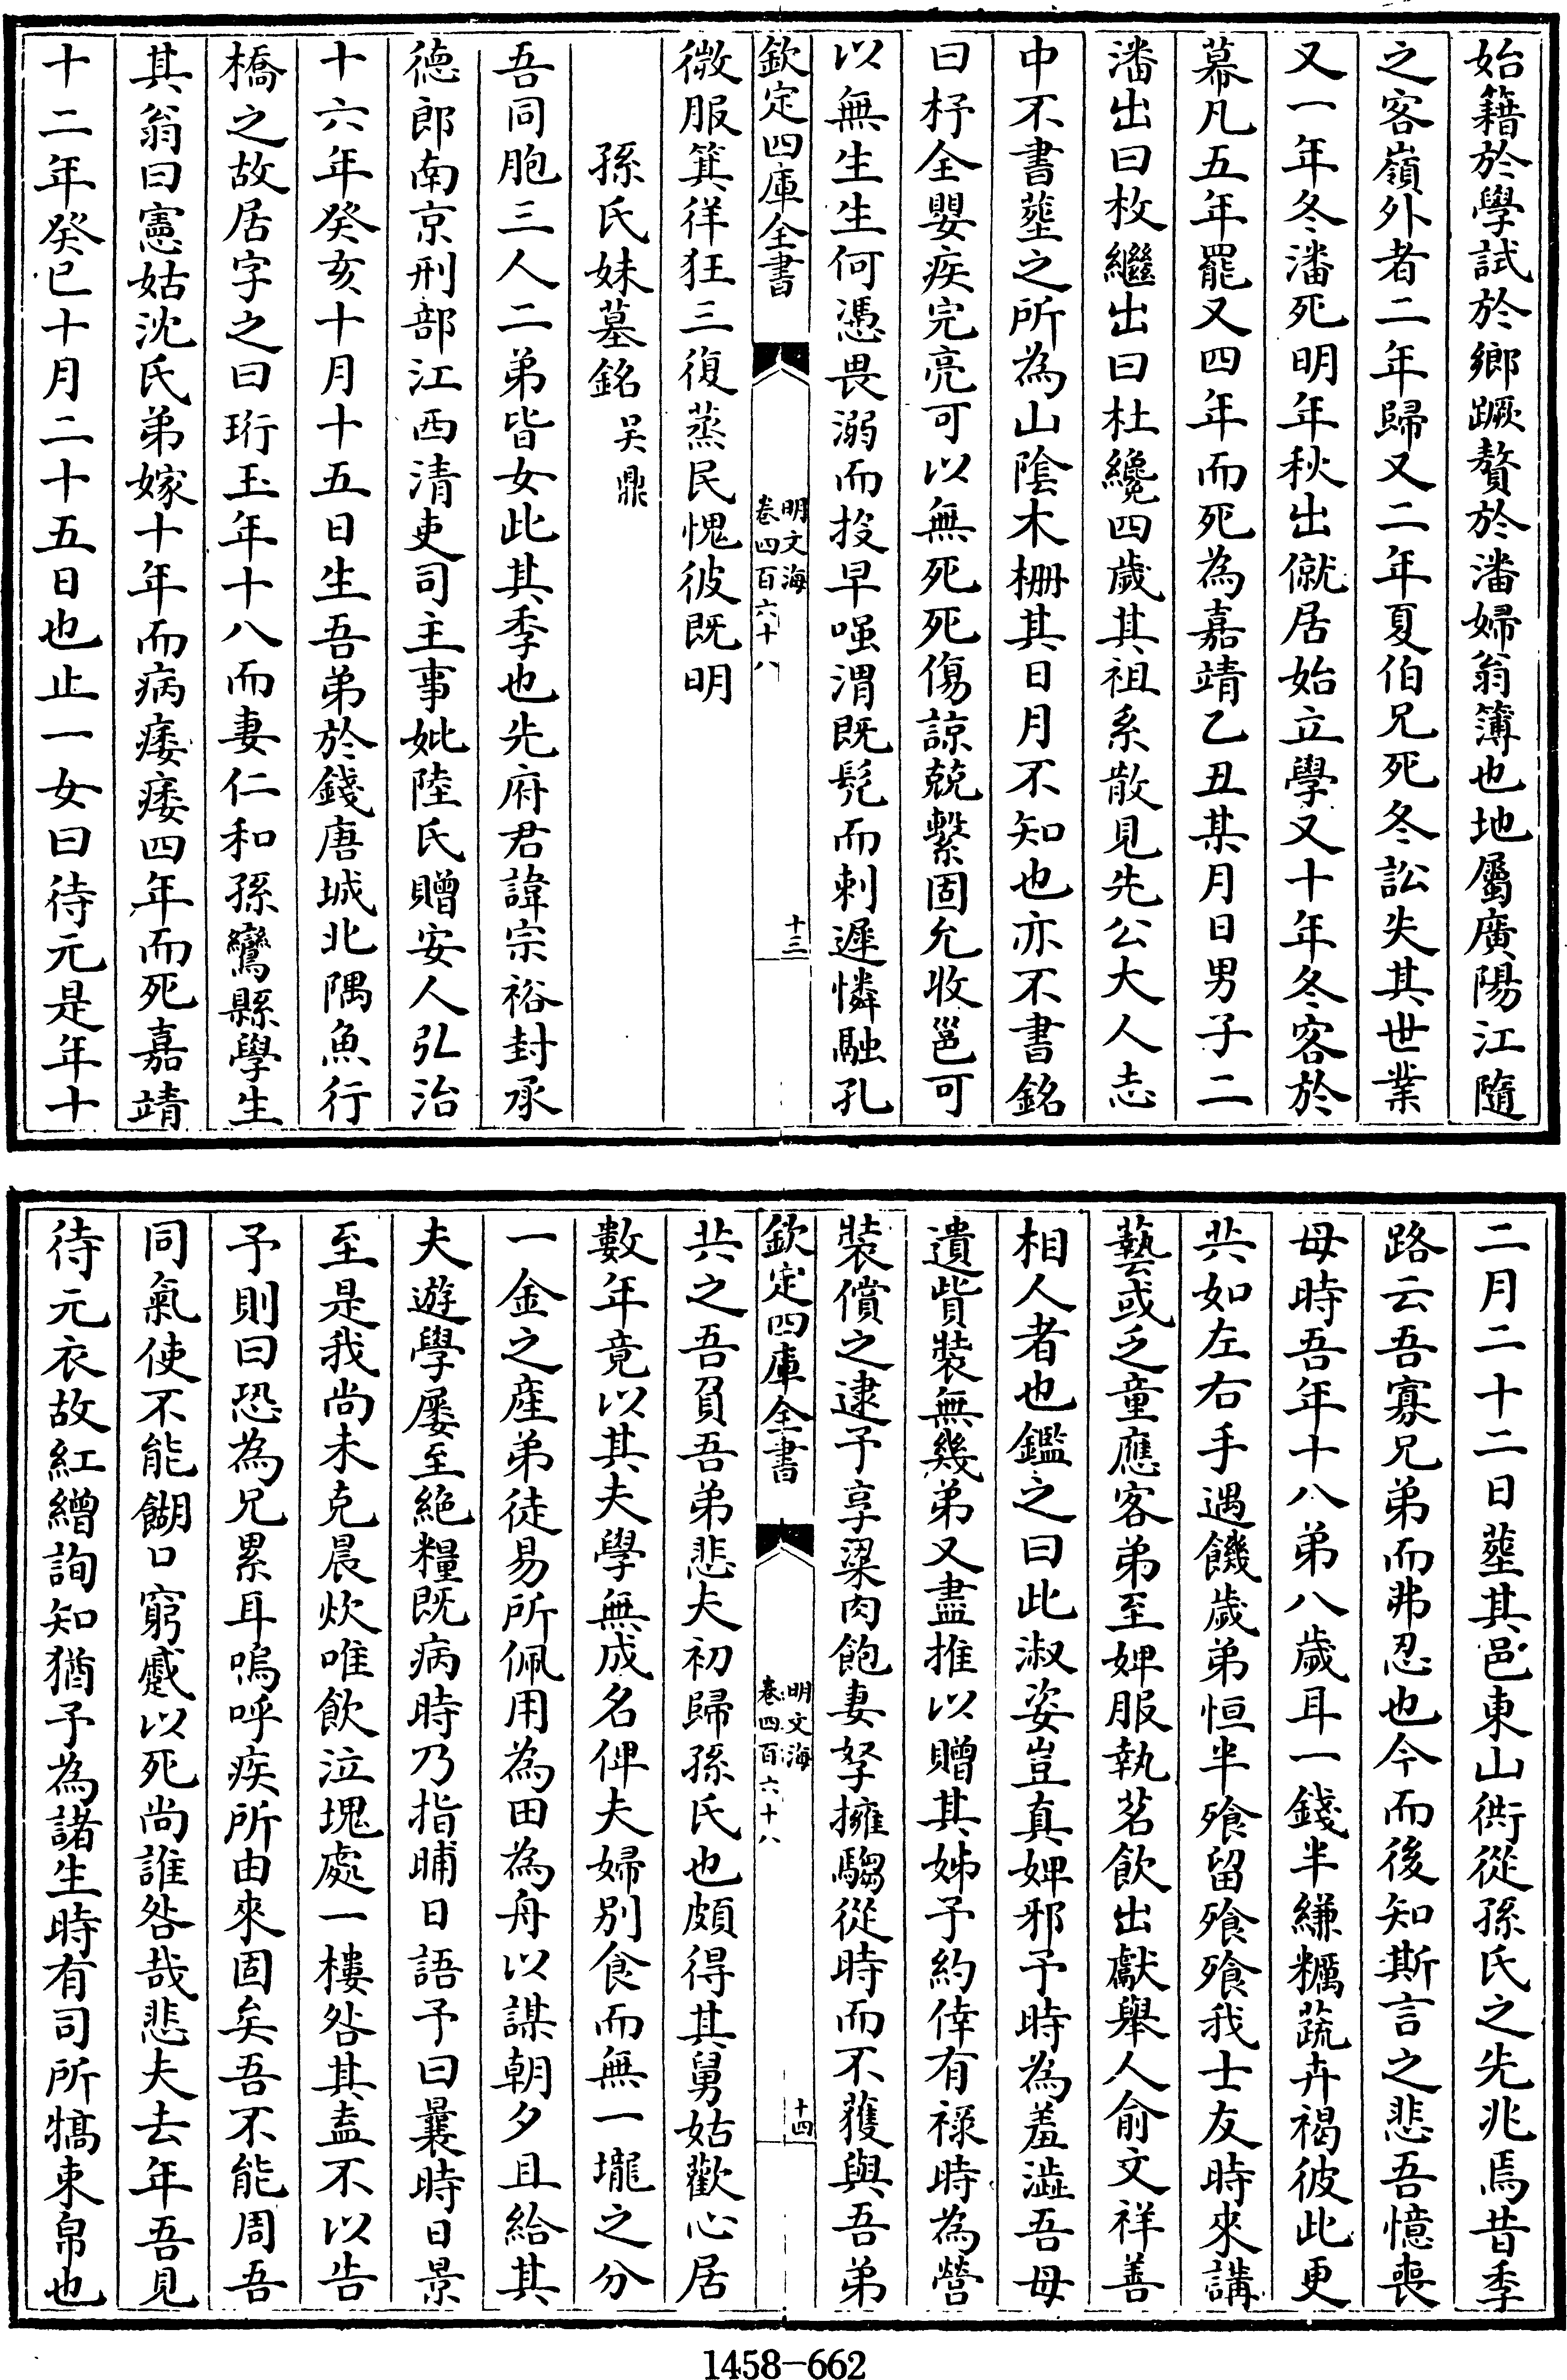 始籍於學試於鄉蹶贅於潘婦翁簿也地屬廣陽江隨
之客嶺外者二年歸又二年夏伯兄死冬訟失其世業
又一年冬潘死明年秋出僦居始立學又十年冬客於
幕凡五年罷又四年而死為嘉靖乙丑某月日男子二
潘出曰枚繼出曰杜纔四歲其祖系散見先公大人志
中不書塟之所為山陰木柵其日月不知也亦不書銘
曰杼全嬰疾完亮可以無死死傷諒兢繫固允收邕可
以無生生何憑畏溺而投早嗤渭既髡而刺遲憐融孔
欽定四庫全書
明文海
卷四百六十八
十三
微服箕徉狂三復蒸民愧彼既明
孫氏妹墓銘 吴鼎
吾同胞三人二弟皆女此其季也先府君諱宗裕封承
德郎南京刑部江西清吏司主事妣陸氏贈安人弘治
十六年癸亥十月十五日生吾弟於錢唐城北隅魚行
橋之故居字之曰珩玉年十八而妻仁和孫鸞縣學生
其翁曰憲姑沈氏弟嫁十年而病痿痿四年而死嘉靖
十二年癸巳十月二十五日也止一女曰待元是年十
二月二十二日塟其邑東山衖從孫氏之先兆焉昔季
路云吾寡兄弟而弗忍也今而後知斯言之悲吾憶喪
母時吾年十八弟八歲耳一錢半縑糲蔬卉褐彼此更
共如左右手遇饑歲弟恒半飱留飱飱我士友時來講
藝或乏童應客弟至婢服執茗飲出獻舉人俞文祥善
相人者也鑑之曰此淑姿豈真婢邪予時為羞澁吾母
遺貲裝無幾弟又盡推以贈其姊予約倖有祿時為營
裝償之逮予享粱肉飽妻孥擁騶從時而不獲與吾弟
欽定四庫全書
明文海
卷四百六十八
十四
共之吾負吾弟悲夫初歸孫氏也頗得其舅姑歡心居
數年竟以其夫學無成名俾夫婦别食而無一壠之分
一金之產弟徒易所佩用為田為舟以謀朝夕且給其
夫遊學屢至絶糧既病時乃指晡日語予曰曩時日景
至是我尚未克晨炊唯飲泣塊處一樓咎其盍不以告
予則曰恐為兄累耳嗚呼疾所由來固矣吾不能周吾
同氣使不能餬口窮蹙以死尚誰咎哉悲夫去年吾見
待元衣故紅繒詢知猶子為諸生時有司所犒束帛也
1458-662